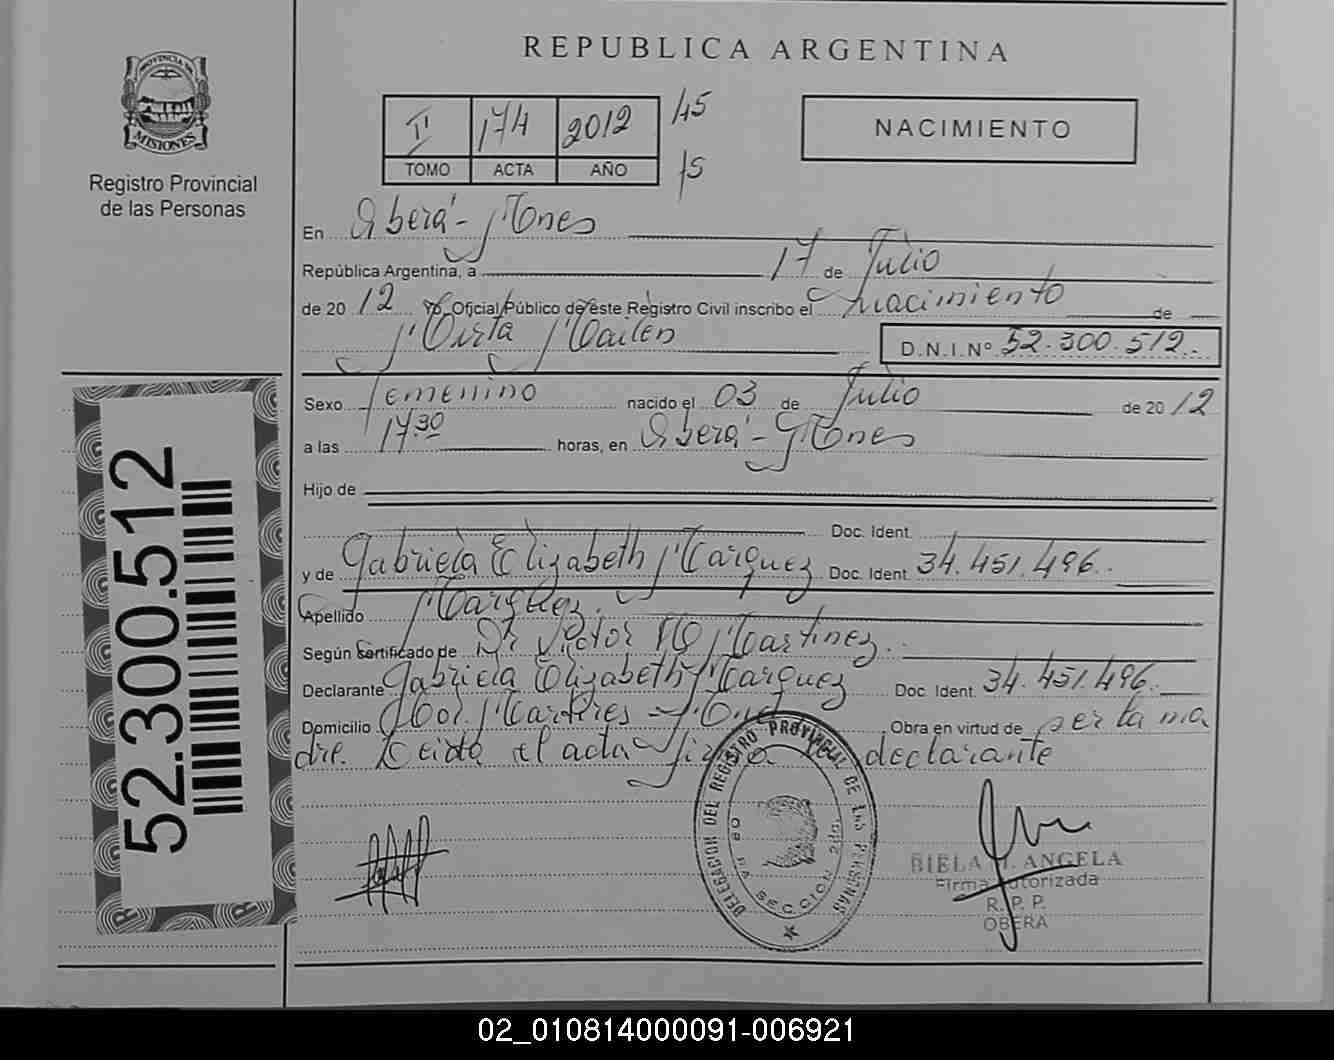 REPUBLICA ARGENTINA
PROVINCIA DE
MISIONES
Registro Provincial
de las Personas
II 174 2012 45
TOMO ACTA AÑO 15
NACIMIENTO
En Oberá - Mnes
República Argentina, a 17 de Julio
de 2012 Yo, Oficial Público de este Registro Civil inscribo el nacimiento de
Mirta Mailen D.N.I.Nº 52.300.512
Sexo femenino nacido el 03 de Julio de 2012
a las 17.30 horas, en Oberá - Mnes
Hijo de
Doc. Ident.
y de Gabriela Elizabeth Marquez Doc. Ident. 34.451.496.
Apellido Marquez.
Según Certificado de Dr Victor Martinez.
Declarante Gabriela Elizabeth Marquez Doc. Ident. 34.451.496.
Domicilio Martires - Obra en virtud de ser la ma
dre. Leida el acta firma declarante
52.300.512
DELEGACION DEL REGISTRO PROVINCIAL DE LAS PERSONAS
OBERA SECCION 2da.
BIELA ANGELA
Firma Autorizada
R. P. P.
OBERA
02_010814000091-006921